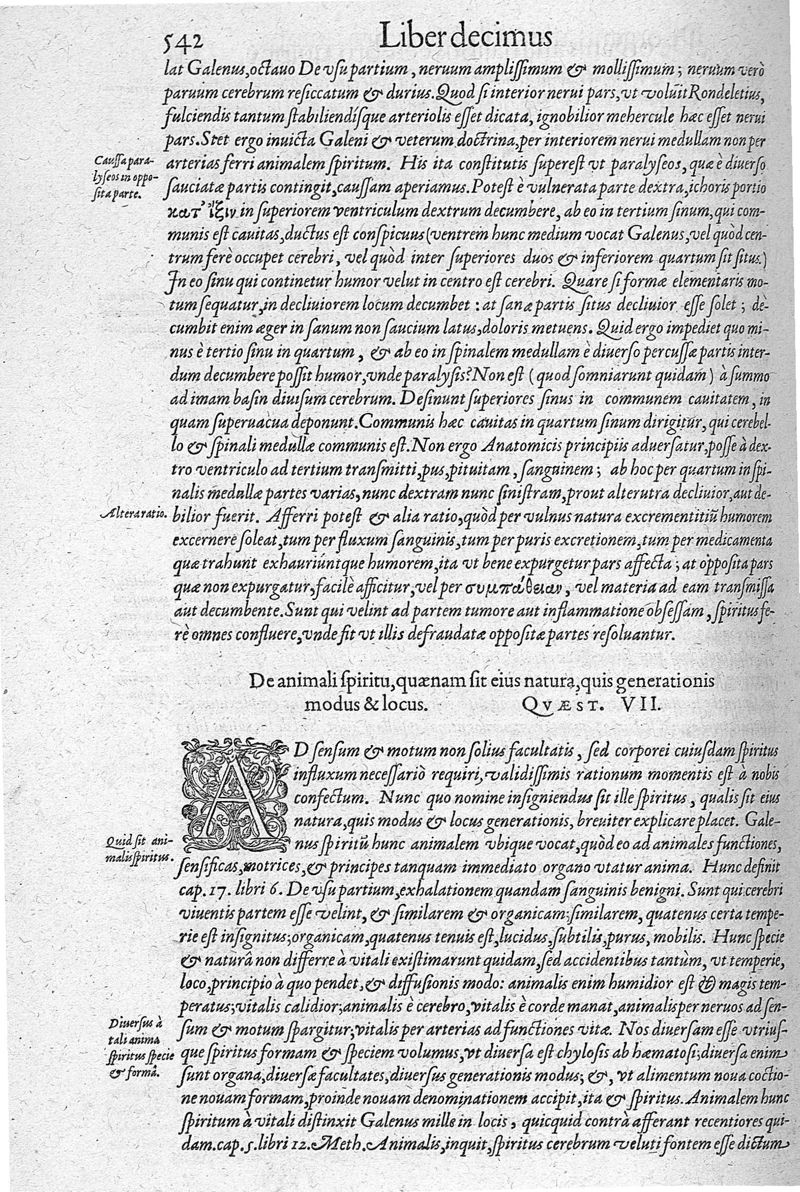 542
Liber decimus
lat Galenus, octauo De vsu partium, neruum amplissimum & mollissimum; neruum verò
paruum cerebrum resiccatum & durius. Quod si interior nerui pars, vt voluit Rondeletius,
fulciendis tantum stabiliendísque arteriolis esset dicata, ignobilior mehercule hæc esset nerui
pars. Stet ergo inuicta Galeni & veterum doctrina, per interiorem nerui medullam non per
Caussa para-
lyseos in oppo-
sita parte.
arterias ferri animalem spiritum. His ita constitutis superest vt paralyseos, quæ è diuerso
sauciatæ partis contingit, caussam aperiamus. Potest è vulnerata parte dextra, ichoris portio
κατ᾽ ἴξιν in superiorem ventriculum dextrum decumbere, ab eo in tertium sinum, qui com-
munis est cauitas, ductus est conspicuus (ventrem hunc medium vocat Galenus, vel quòd cen-
trum ferè occupet cerebri, vel quòd inter superiores duos & inferiorem quartum sit situs.)
In eo sinu qui continetur humor velut in centro est cerebri. Quare si formæ elementaris mo-
tum sequatur, in decliuiorem locum decumbet: at sanæ partis situs decliuior esse solet; de-
cumbit enim æger in sanum non saucium latus, doloris metuens. Quid ergo impediet quo mi-
nus è tertio sinu in quartum, & ab eo in spinalem medullam è diuerso percussæ partis inter-
dum decumbere possit humor, vnde paralysis? Non est (quod somniarunt quidam) à summo
ad imam basin diuisum cerebrum. Desinunt superiores sinus in communem cauitatem, in
quam superuacua deponunt. Communis hæc cauitas in quartum sinum dirigitur, qui cerebel-
lo & spinali medullæ communis est. Non ergo Anatomicis principiis aduersatur, posse à dex-
tro ventriculo ad tertium transmitti, pus, pituitam, sanguinem; ab hoc per quartum in spi-
nalis medullæ partes varias, nunc dextram nunc sinistram, prout alterutra decliuior, aut de-
Altera ratio.
bilior fuerit. Afferri potest & alia ratio, quòd per vulnus natura excrementitiū humorem
excernere soleat, tum per fluxum sanguinis, tum per puris excretionem, tum per medicamenta
quæ trahunt exhauriúntque humorem, ita vt bene expurgetur pars affecta; at opposita pars
quæ non expurgatur, facilè afficitur, vel per συμπάθειαν, vel materia ad eam transmissa
aut decumbente. Sunt qui velint ad partem tumore aut inflammatione obsessam, spiritus fe-
rè omnes confluere, vnde fit vt illis defraudatæ oppositæ partes resoluantur.
De animali spiritu, quænam sit eius natura, quis generationis
modus & locus. QVÆST. VII.
AD sensum & motum non solius facultatis, sed corporei cuiusdam spiritus
influxum necessariò requiri, validissimis rationum momentis est à nobis
confectum. Nunc quo nomine insigniendus sit ille spiritus, qualis sit eius
natura, quis modus & locus generationis, breuiter explicare placet. Gale-
Quid sit ani-
malis spiritus.
nus spiritū hunc animalem vbique vocat, quòd eo ad animales functiones,
sensificas, motrices, & principes tanquam immediato organo vtatur anima. Hunc definit
cap. 17. libri 6. De vsu partium, exhalationem quandam sanguinis benigni. Sunt qui cerebri
viuentis partem esse velint, & similarem & organicam; similarem, quatenus certa tempe-
rie est insignitus; organicam, quatenus tenuis est, lucidus, subtilis, purus, mobilis. Hunc specie
& naturâ non differre à vitali existimarunt quidam, sed accidentibus tantùm, vt temperie,
loco, principio à quo pendet, & diffusionis modo: animalis enim humidior est & magis tem-
peratus; vitalis calidior; animalis è cerebro, vitalis è corde manat, animalis per neruos ad sen-
Diuersus à
tali anima
spiritus specie
& formâ.
sum & motum spargitur; vitalis per arterias ad functiones vitæ. Nos diuersam esse vtrius-
que spiritus formam & speciem volumus, vt diuersa est chylosis ab hæmatosi; diuersa enim
sunt organa, diuersæ facultates, diuersus generationis modus; &, vt alimentum noua coctio-
ne nouam formam, proinde nouam denominationem accipit, ita & spiritus. Animalem hunc
spiritum à vitali distinxit Galenus mille in locis, quicquid contrà afferant recentiores qui-
dam. cap. 5. libri 12. Meth. Animalis, inquit, spiritus cerebrum veluti fontem esse dictum